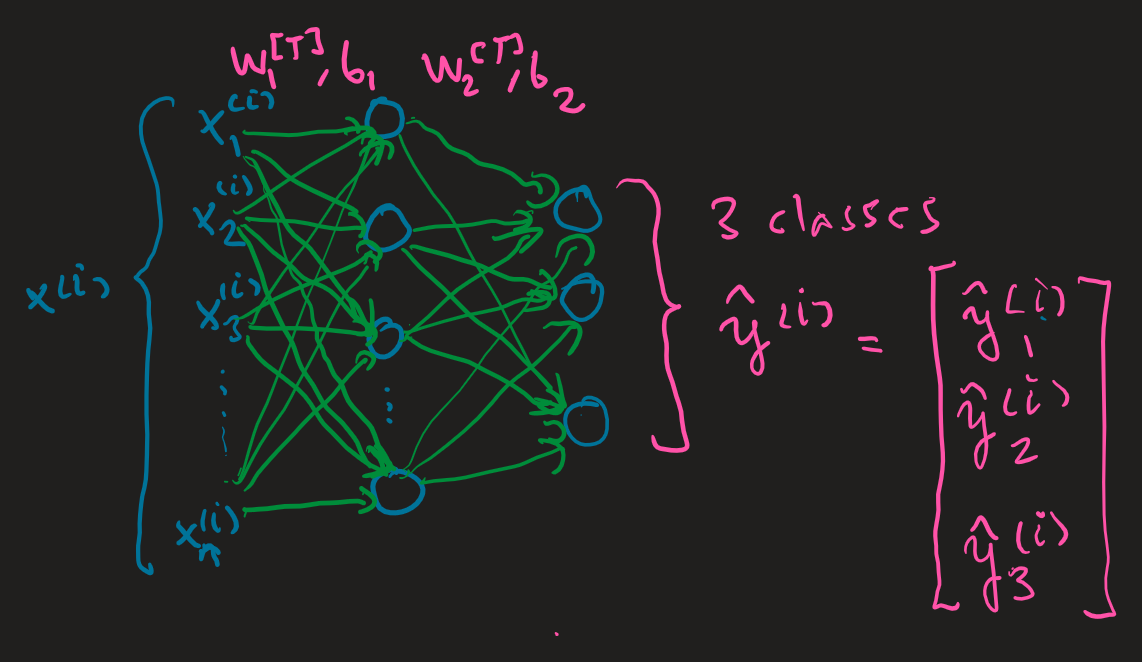 W₁^[T], b₁ W₂^[T], b₂
x^(i)
x₁^(i)
x₂^(i)
x₃^(i)
xₙ^(i)
3 classes
ŷ^(i) = [ŷ₁^(i)
ŷ₂^(i)
ŷ₃^(i)]